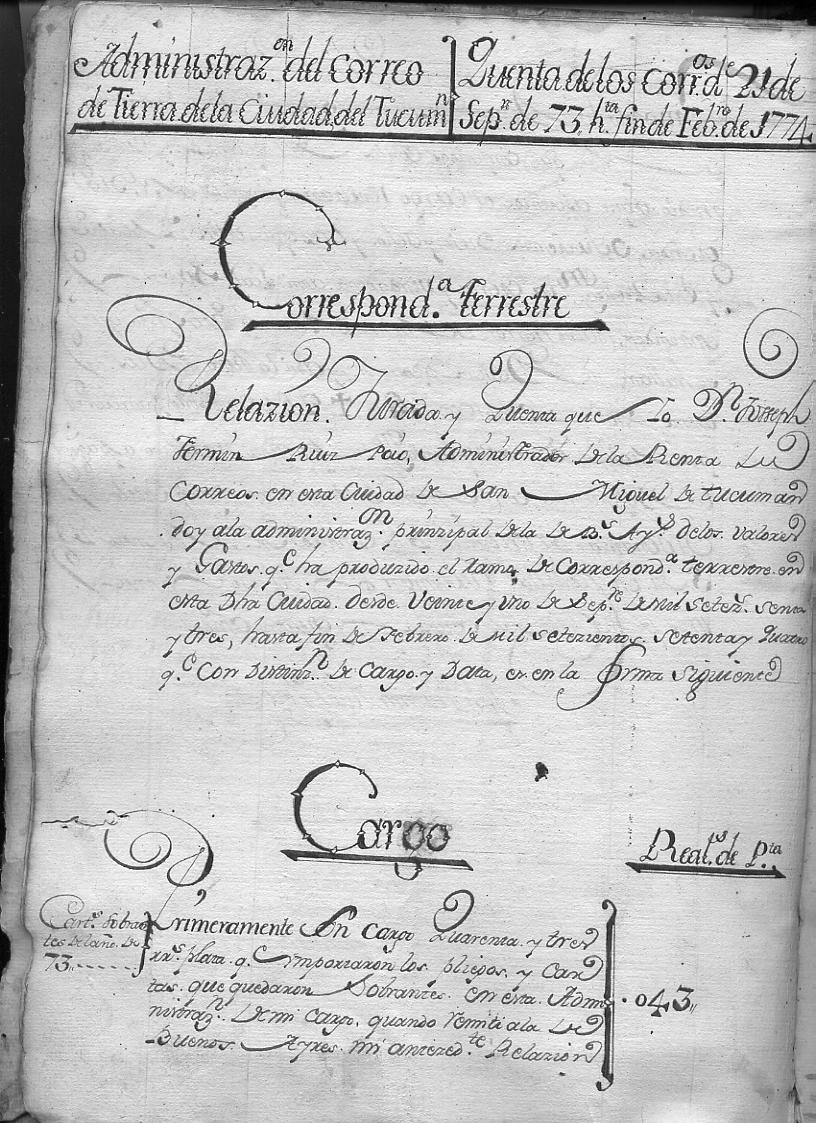 Administraz.on del Correo
de Tierra de la Ciudad, del Tucumn
Quenta de los Corr.os de 21 de
Sep.n de 73, h.ta fin de Feb.ro de 1774
Correspond.a Terrestre
Relazion. Jurada y Quenta que Yo D.n Joseph
Fermin Ruiz Poio, Administrador de la Renta de
Correos. en esta Ciudad de San Miguel de tucuman
doy ala administraz.on prinzipal de la de B.s Ay.s delos. valores
y Gastos. q.e ha produzido el Ramo de Correspond.a terrestre. en
esta Dha Ciudad. desde. Veinte y uno de Sep.re de mil setez.s senta
y tres, hasta fin de Febrero. de mil setezientos. setenta y quatro
q.e con distinz.n de cargo. y Data, es. en la forma siguiente
Cargo
Real.s de P.ta
Cart.s sobran
tes del año. de
73.......
Primeramente Son cargo Quarenta. y tres
rr.s plata. q.e importaron los pliegos. y Car
tas. que quedaron Sobrantes. en esta. Admi
nistraz.n. de mi cargo, quando remiti ala de
Buenos. Ayres. mi anteced.te Relazion
. 043,,